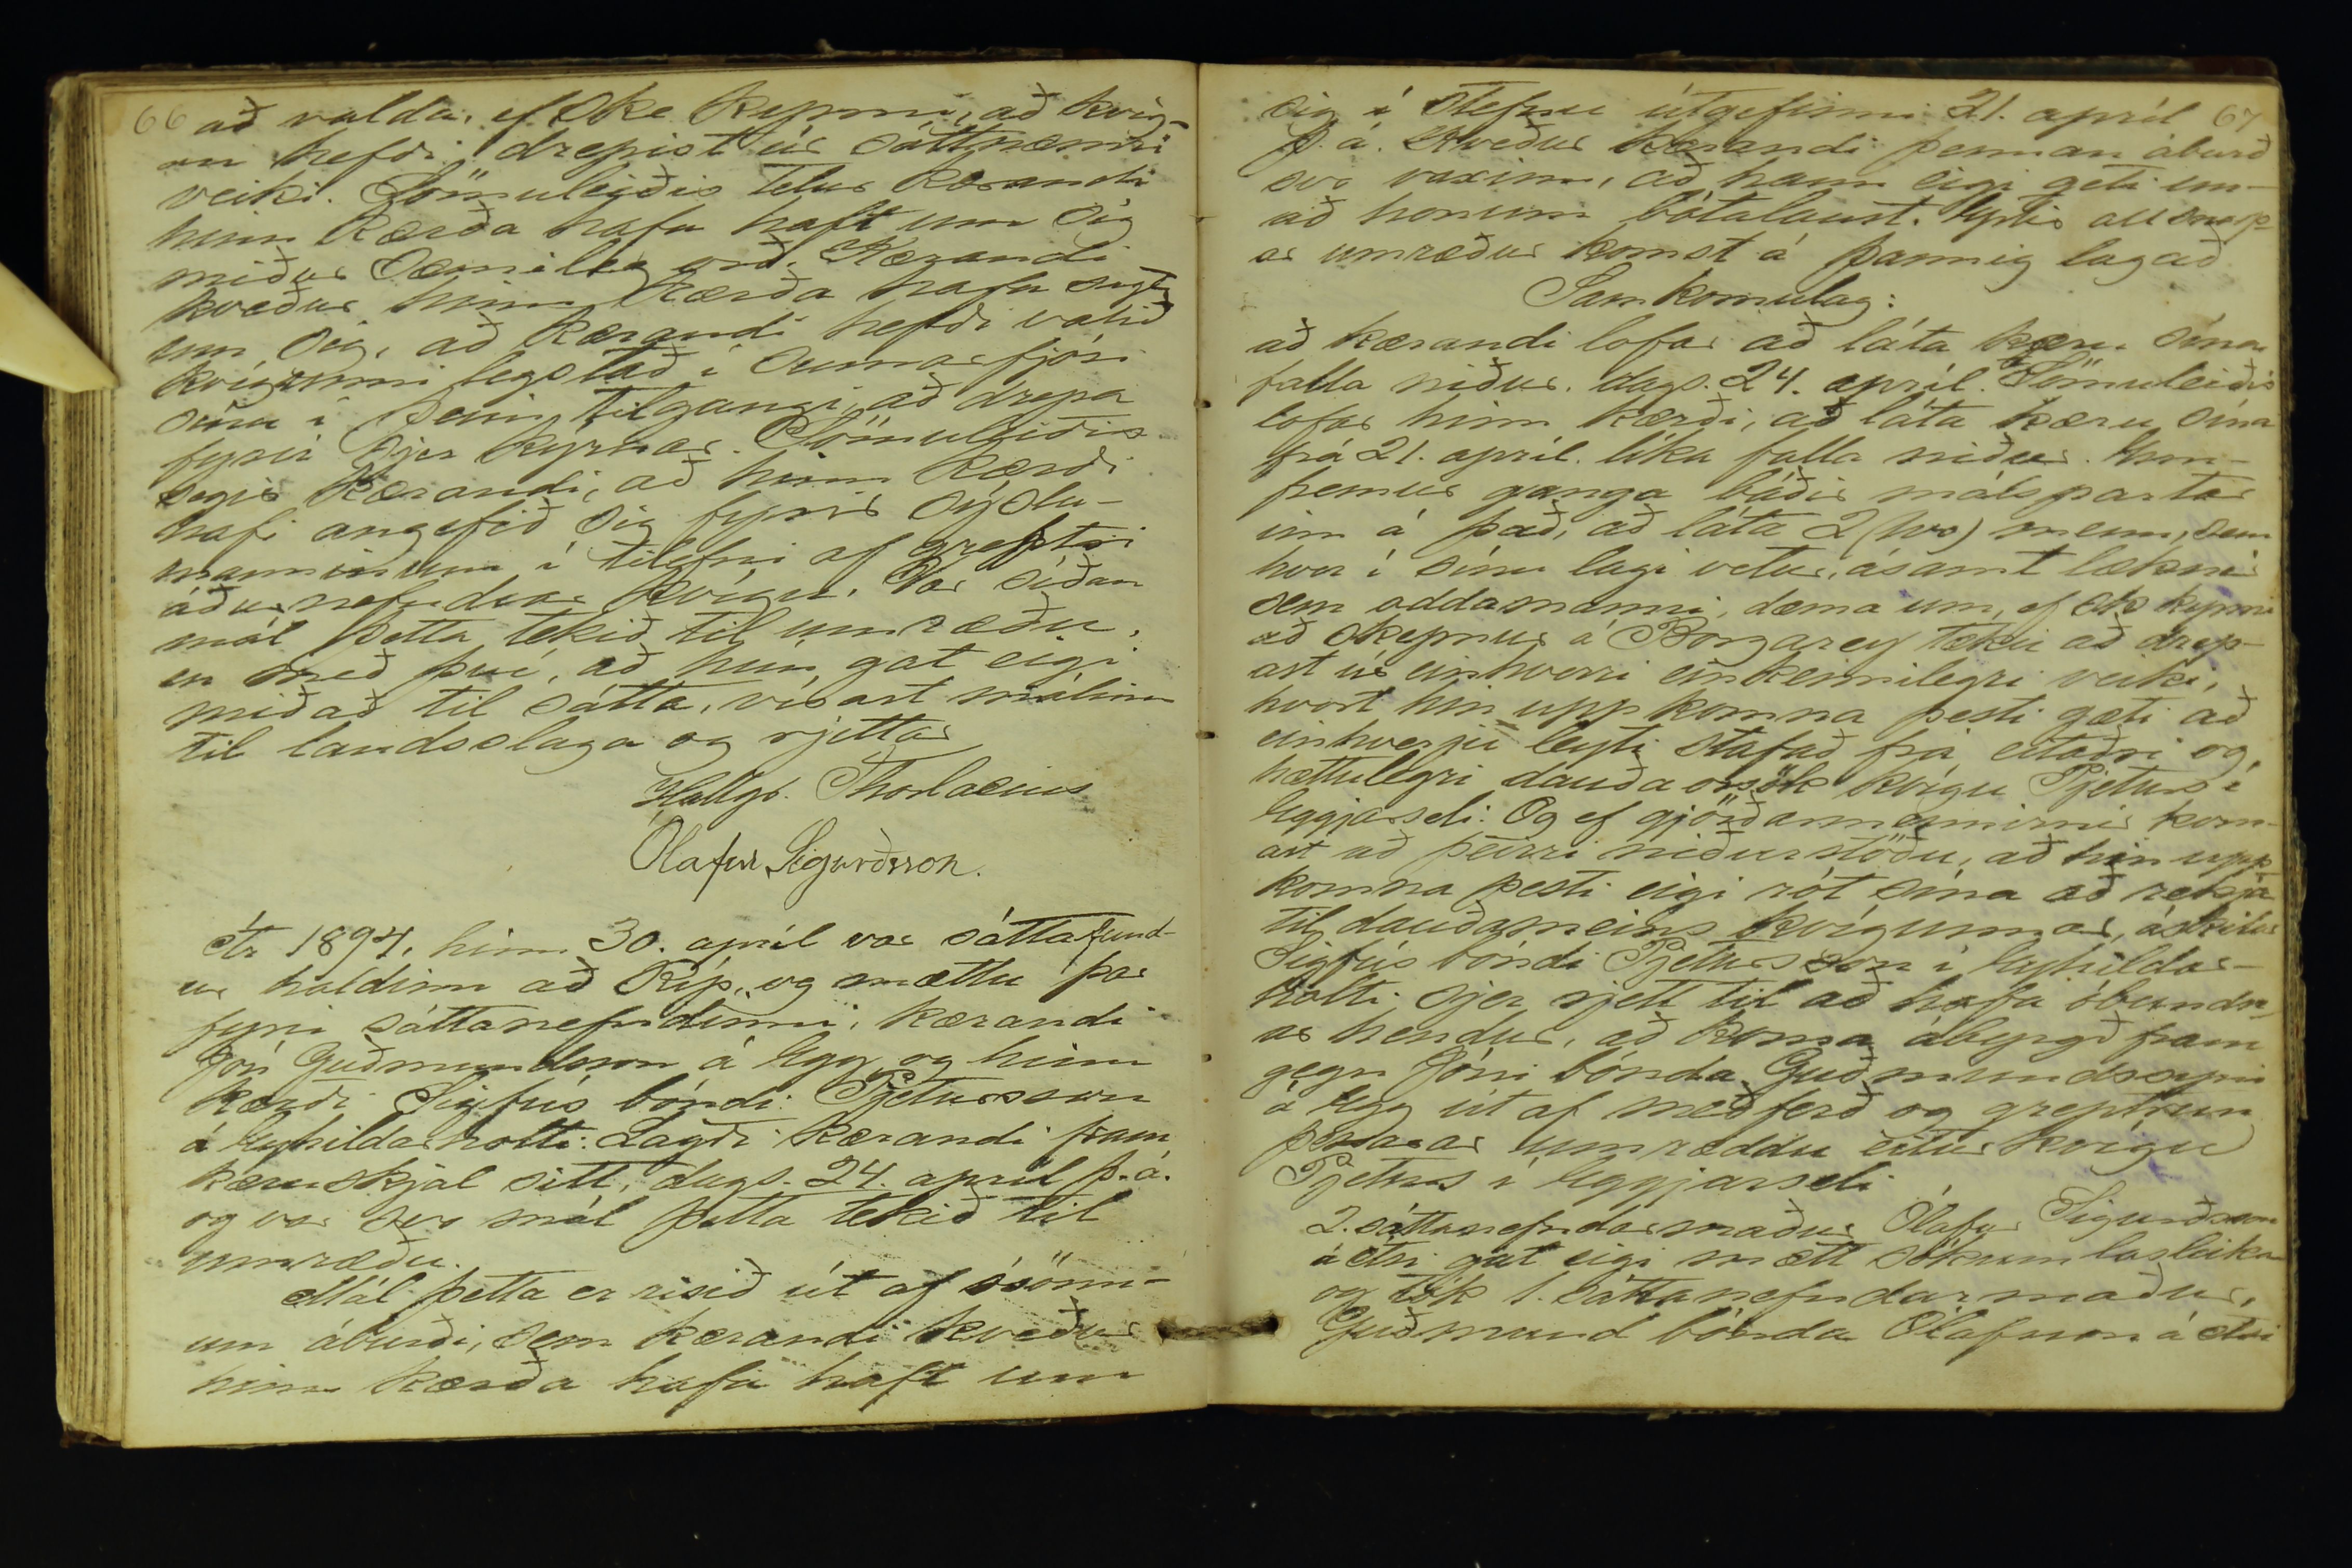 66
að valda, ef ske kynni, að kvíg-
an hefði drepist úr sóttnæmri
veiki. Sömuleiðis telur kærandi
hinn kærða hafa haft um sig
miður sæmileg orð. Kærandi
kveður hinn kærða hafa sagt
um sig, að kærandi hefði valið
kvígunni legstað í sumarfjósi
sínu í þeim tilgangi, að drepa
fyrir sjer kýrnar. Sömuleiðis
segir kærandi, að hinn kærði
hafi angefið sig fyrir sýslu-
manninum í tilefni af greptri
áðurnefndrar kvígu. Var síðan
mál þetta tekið til umræðu,
en með því, að hún gat eigi
miðað til sátta, vísast málinu
til landslaga og rjettar
Hallgr. Thorlacius
Ólafur Sigurðsson.
Ár 1894, hinn 30. apríl var sáttafund-
ur haldinn að Ríp, og mættu þar
fyrir sáttanefndinni, kærandi
Jón Guðmundsson á Egg og hinn
kærði Sigfús bóndi Pjetursson
á Eyhildarholti: Lagði kærandi fram
kæruskjal sitt, dags. 24. apríl þ.á.
og var svo mál þetta tekið til
umræðu.
Mál þetta er risið út af ósönn-
um áburði, sem kærandi kveður
hinn kærða hafa haft um
67
sig í stefnu útgefinni 21. apríl
þ.á. Kveður kærandi þennan áburð
svo vaxinn, að hann eigi geti un-
að honum bótalaust. Eptir all snarp-
ar umræður komst á þannig lagað
Samkomulag:
að kærandi lofar að láta kæru sína
falla niður, dags. 24. apríl. Sömuleiðis
lofar hinn kærði, að láta kæru sína
frá 21. apríl. líka falla niður. Enn-
fremur ganga báðir málspartar
inn á það, að láta 2 (tvo) menn, sem
hver í sínu lagi velur, ásamt lækni
sem oddamanni, dæma um, ef ske kynni
að skepnur á Borgarey tæku að drep-
ast úr einhverri einkennilegri veiki,
hvort hin uppkomna pesti gæti að
einhverju leyti stafað frá eitaðri og
hættulegri dauðaorsök kvígu Pjeturs í
Eggjarseli: Og ef gjörðarmennirnir kom-
ast að þeirri niðurstöðu, að hin upp
komna pesti eigi rót sína að rekja
til dauðameins kvígunnar, áskilur
Sigfús bóndi Pjetursson í Eyhildar-
holti sjer rjett til að hafa óbundn-
ar hendur, að koma ábyrgð fram
gegn Jóni bónda Guðmundssyni
á Egg út af meðferð og greptrun
þessarar umræddu eitur kvígu
Pjeturs í Eggjarseli
2. sáttanefndarmaður Ólafur Sigurðsson
á Ási gat eigi mætt sökum lasleika
og tók 1. sáttanefndarmaður,
Guðmund bónda Ólafsson á Ási